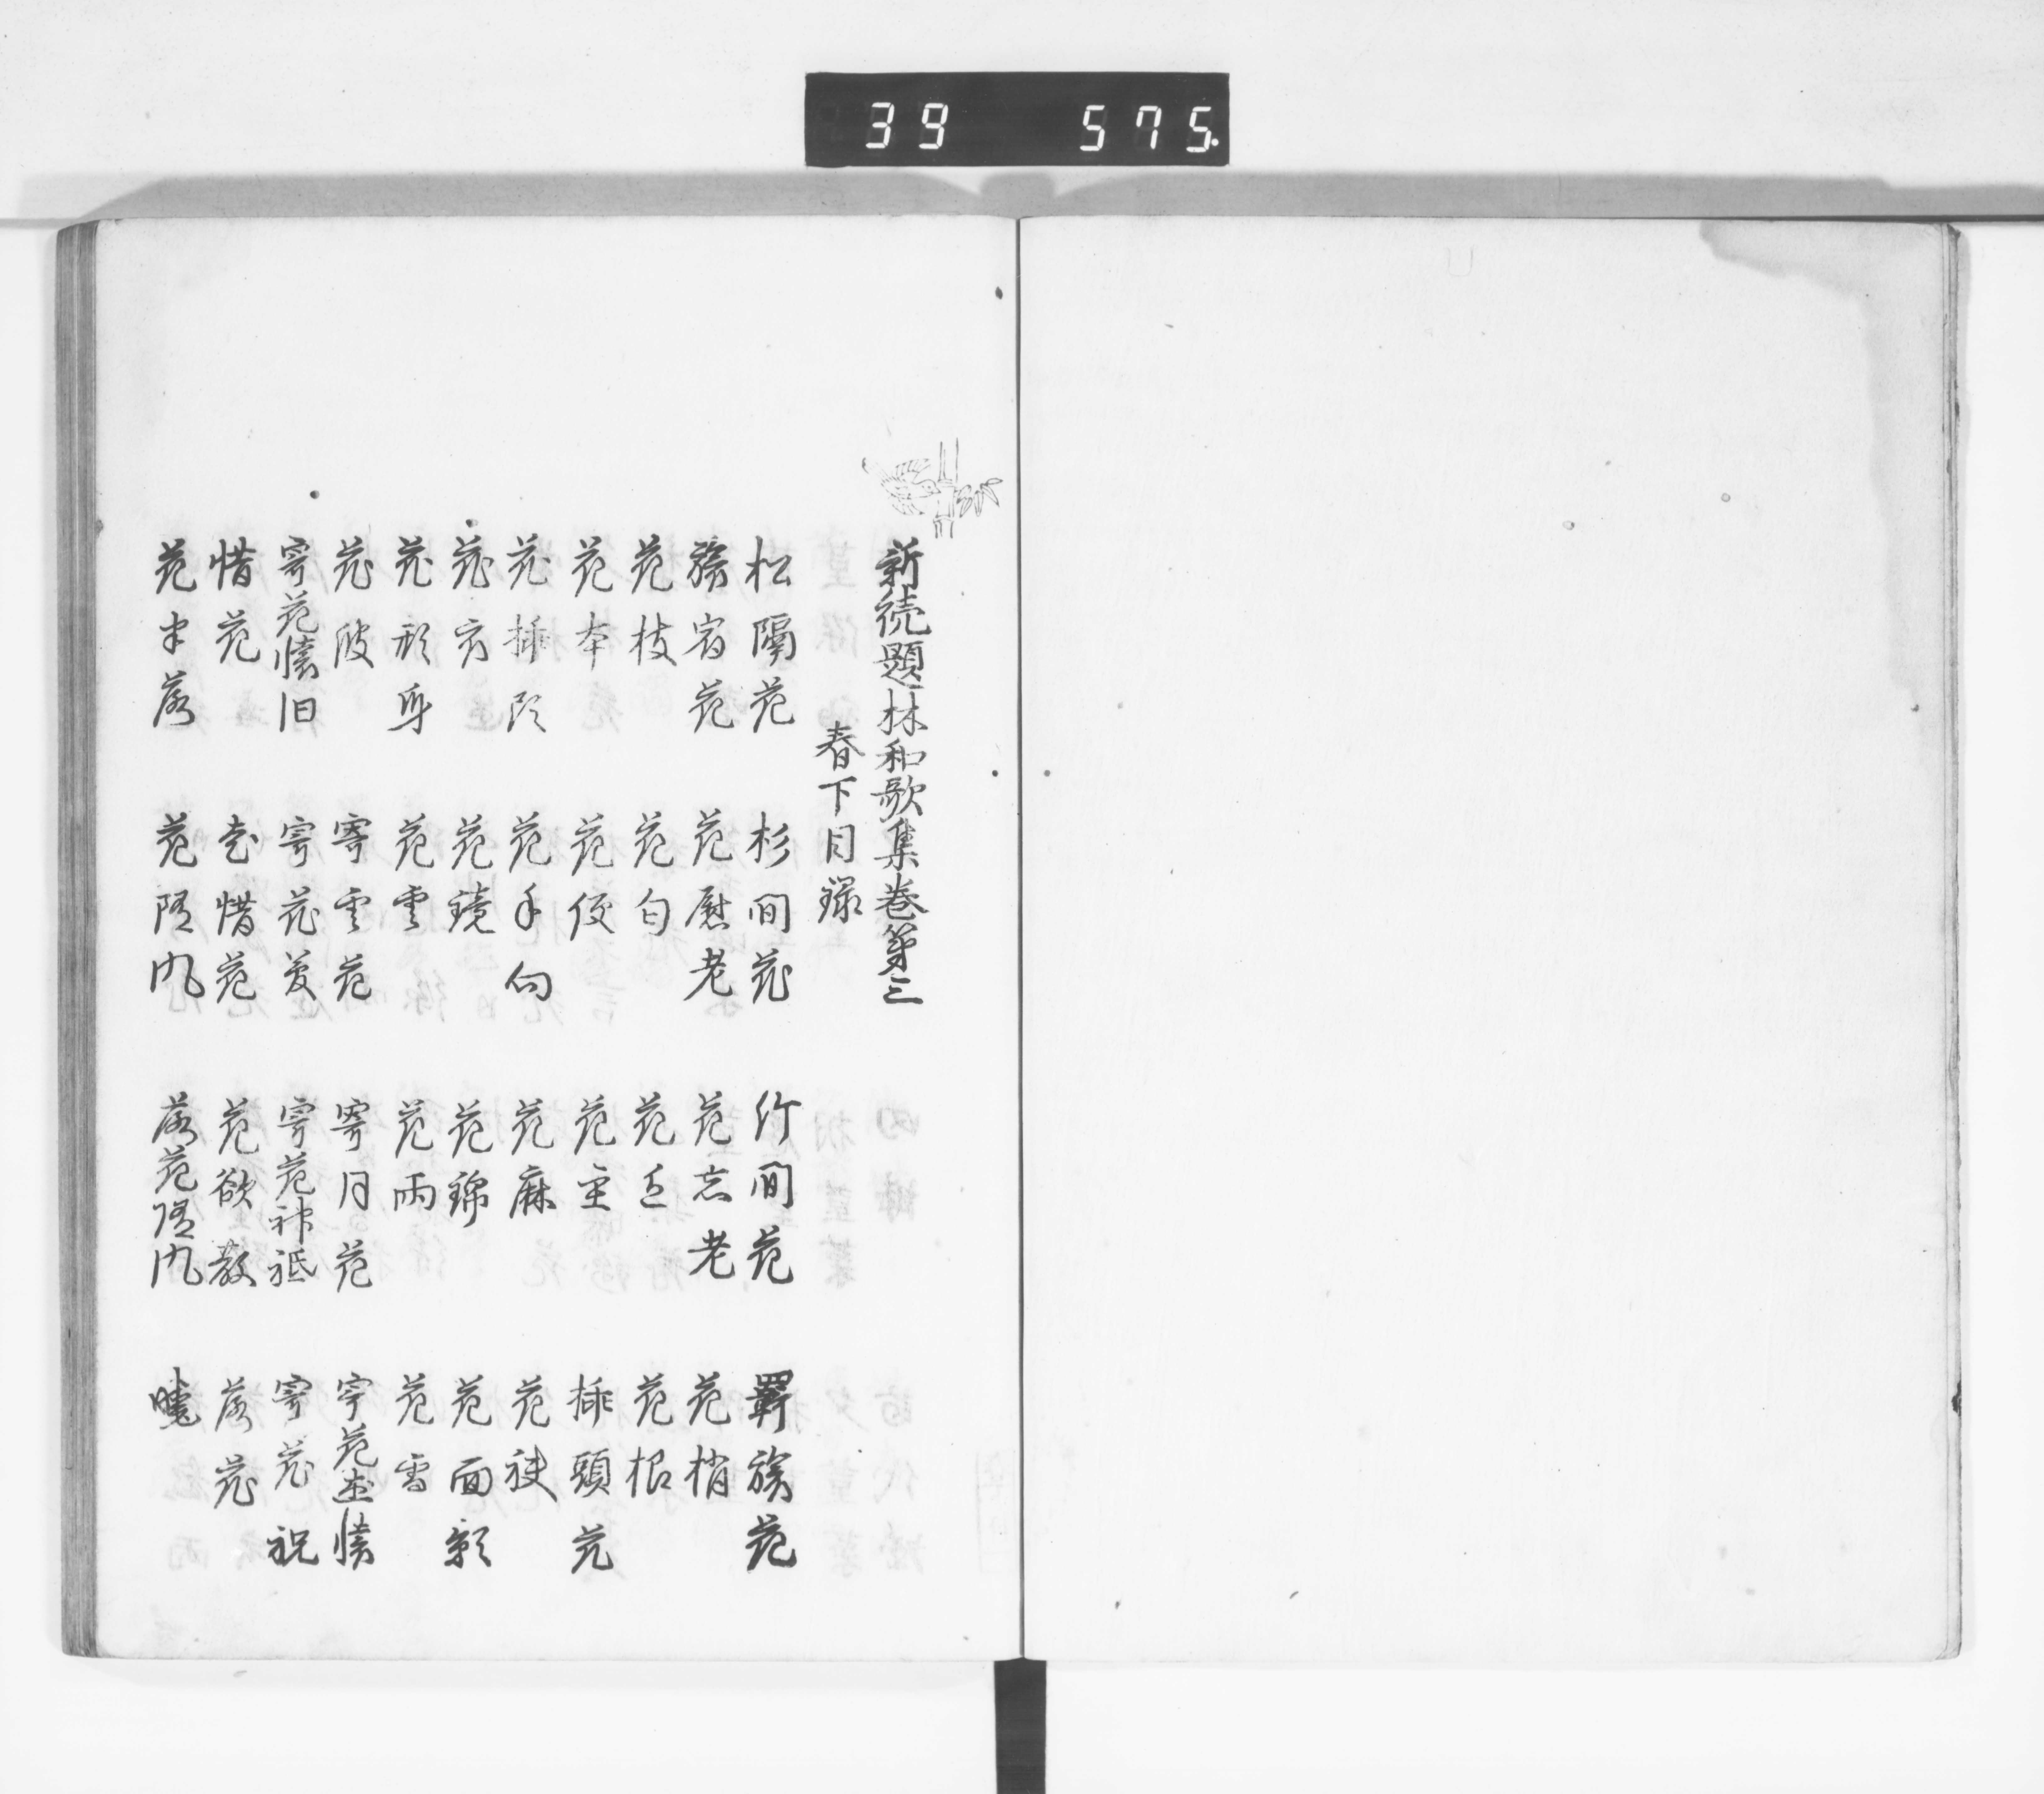 39 575.
新続題林和歌集巻第三
春下目録
松隔花 杉間花 竹間花 羇旅花
旅宿花 花慰老 花忘老 花梢
花枝 花匂 花色 花根
花本 花使 花主 挿頭花
花挿頭 花手向 花麻 花袂
花衣 花鏡 花錦 花面影
花形身 花雲 花雨 花雪
花波 寄雲花 寄月花 寄花述懐
寄花懐旧 寄花夏 寄花神祇 寄花祝
惜花 惜花 花欲散 落花
花半落 花随風 落花随風 暁